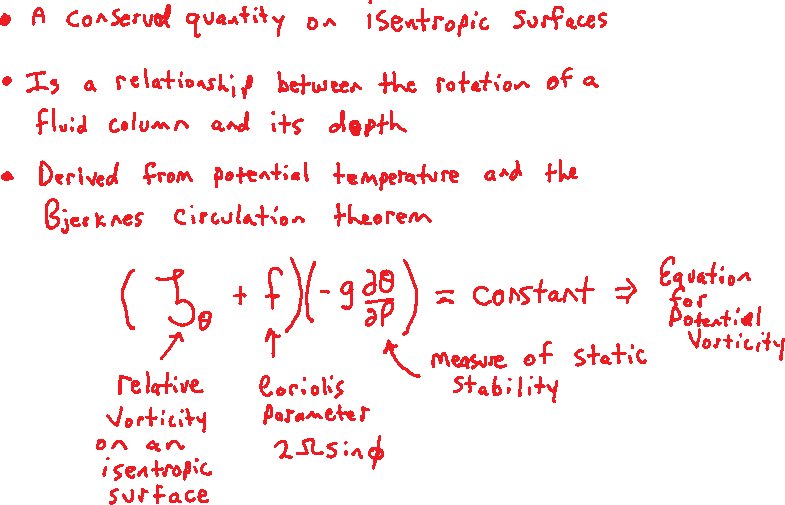 • A conserved quantity on isentropic surfaces
• Is a relationship between the rotation of a
fluid column and its depth
• Derived from potential temperature and the
Bjerknes circulation theorem
(ζ_θ + f)(-g ∂θ/∂P) = constant ⇒ Equation
for
Potential
Vorticity
measure of static
stability
relative
vorticity
on an
isentropic
surface
Coriolis
parameter
2Ωsinϕ